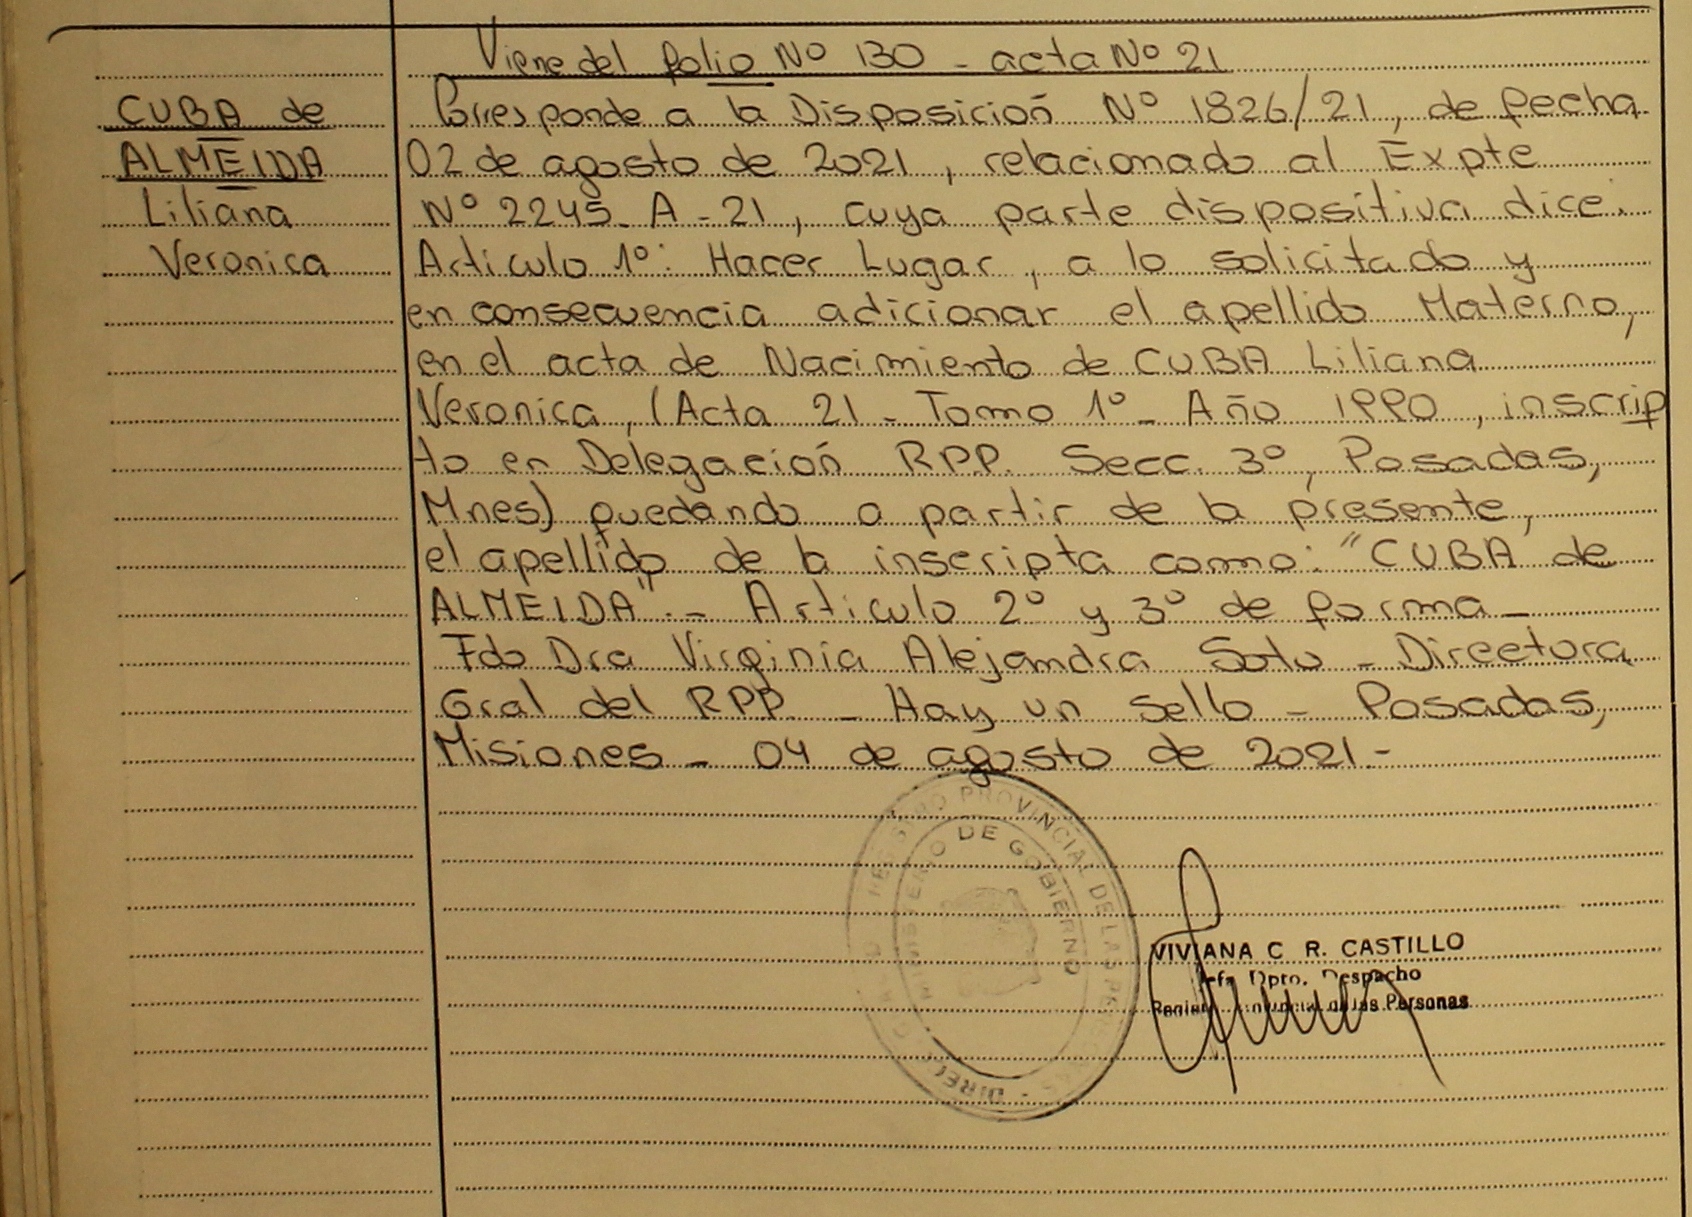 Viene del folio Nº 130 - acta Nº 21
CUBA de
ALMEIDA
Liliana
Veronica
Corresponde a la Disposición Nº 1826/21, de fecha
02 de agosto de 2021, relacionado al Expte
Nº 2245- A - 21, cuya parte dispositiva dice:
Articulo 1º: Hacer Lugar, a lo solicitado y
en consecuencia adicionar el apellido Materno,
en el acta de Nacimiento de CUBA Liliana
Veronica, (Acta 21 - Tomo 1º - Año 1990, inscrip
to en Delegación RPP. Secc. 3º, Posadas,
Mnes) quedando a partir de la presente,
el apellido de la inscripta como: "CUBA de
ALMEIDA".- Articulo 2º y 3º de forma -
Fdo Dra Virginia Alejandra Soto - Directora
Gral del RPP. - Hay un sello - Posadas,
Misiones - 04 de agosto de 2021 -
REGISTRO PROVINCIAL DE LAS PERSONAS
MINISTERIO DE GOBIERNO
VIVIANA C R. CASTILLO
Jefa Dpto. Despacho
Registro Provincial de las Personas